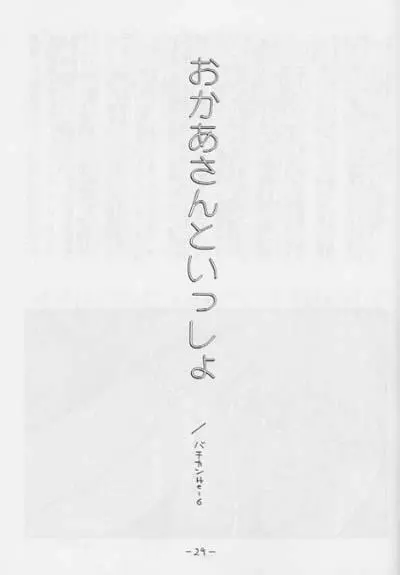 おかあさんといっしょ
／バチカンHe-6
-29-